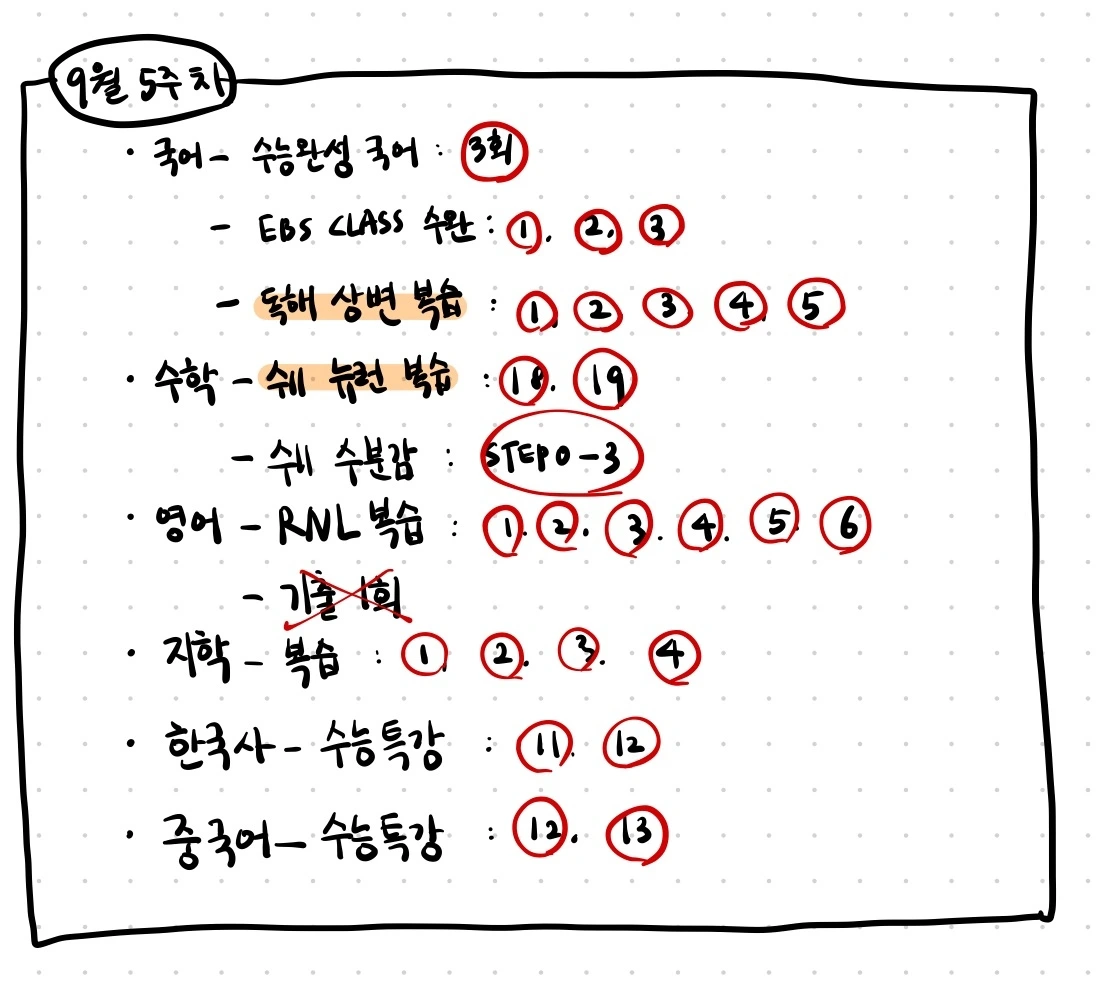 9월 5주차
· 국어 - 수능완성 국어 : 3회
- EBS CLASS 수완 : 1. 2. 3
- 독해 상변 복습 : 1. 2 3 4. 5
· 수학 - 수II 뉴런 복습 : 18. 19
- 수II 수분감 : STEP0-3
· 영어 - RNL 복습 : 1. 2. 3. 4. 5. 6
- 기출 1회
· 지학 - 복습 : 1. 2. 3. 4
· 한국사 - 수능특강 : 11. 12
· 중국어 - 수능특강 : 12. 13